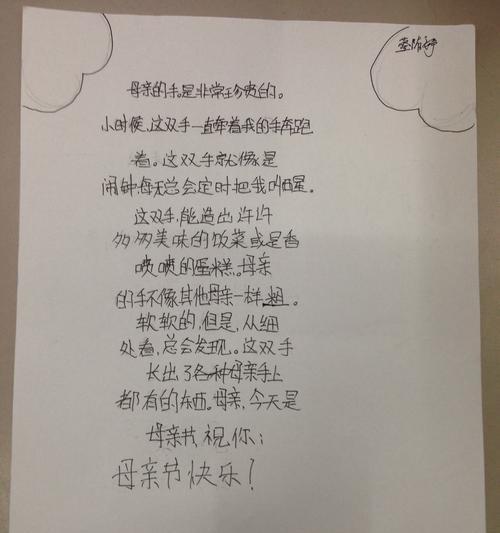 母亲的手。是非常珍贵的。
小时候,这双手一直牵着我的手奔跑
着。这双手就像是
闹钟,每天总会定时把我叫醒。
这双手,能造出许许
多多美味的饭菜或是香
喷喷的蛋糕。母亲
的手不像其他母亲一样粗。
软软的,但是,从细
处看,总会发现。这双手
长出了各种母亲手上
都有的东西。母亲,今天是
母亲节,祝你:
母亲节快乐!